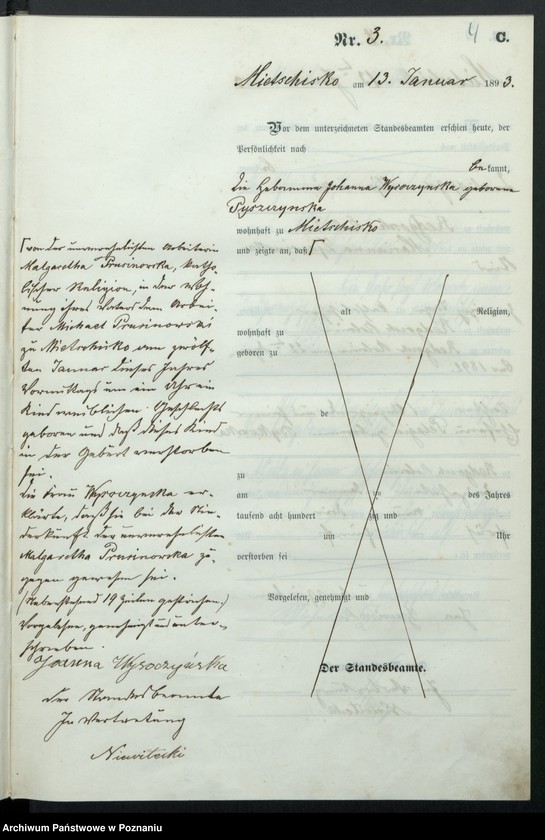 Nr. 3.
4
C.
Mietschisko am 13. Januar 1893.
Vor dem unterzeichneten Standesbeamten erschien heute, der
Persönlichkeit nach
bekannt,
die Hebamme Johanna Wysoczynska geborene
Pyszczynska
wohnhaft zu Mietschisko
und zeigte an, daß
von der unverehelichten Arbeiterin
Malgaretha Prusinowska, katho-
lischer Religion, in der Woh-
nung ihres Vaters dem Arbei-
ter Michael Prusinowski
zu Mietschisko am zwölf-
ten Januar dieses Jahres
Vormittags um ein Uhr ein
Kind weiblichen Geschlechts
geboren und daß dieses Kind
in der Geburt verstorben
sei.
Die Frau Wysoczynska er-
klärte, daß sie bei der Nie-
derkunft der unverehelichten
Malgaretha Prusinowska zu-
gegen gewesen sei.
(Nebenstehend 19 Zeilen gestrichen.)
Vorgelesen, genehmigt und unter-
schrieben.
Joanna Wysoczyńska
Der Standesbeamte
In Vertretung
alt Religion,
wohnhaft zu
geboren zu
de
zu
am ten des Jahres
tausend acht hundert zig und
um Uhr
verstorben sei
Vorgelesen, genehmigt und
Der Standesbeamte.
Archiwum Państwowe w Poznaniu